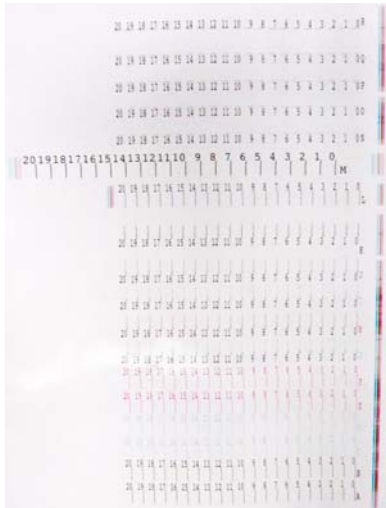 20 19 18 17 16 15 14 13 12 11 10 9 8 7 6 5 4 3 2 1 0
20 19 18 17 16 15 14 13 12 11 10 9 8 7 6 5 4 3 2 1 0
20 19 18 17 16 15 14 13 12 11 10 9 8 7 6 5 4 3 2 1 0
20 19 18 17 16 15 14 13 12 11 10 9 8 7 6 5 4 3 2 1 0
20 19 18 17 16 15 14 13 12 11 10 9 8 7 6 5 4 3 2 1 0
20 19 18 17 16 15 14 13 12 11 10 9 8 7 6 5 4 3 2 1 0 M
20 19 18 17 16 15 14 13 12 11 10 9 8 7 6 5 4 3 2 1 0 L
20 19 18 17 16 15 14 13 12 11 10 9 8 7 6 5 4 3 2 1 0
20 19 18 17 16 15 14 13 12 11 10 9 8 7 6 5 4 3 2 1 0
20 19 18 17 16 15 14 13 12 11 10 9 8 7 6 5 4 3 2 1 0
20 19 18 17 16 15 14 13 12 11 10 9 8 7 6 5 4 3 2 1 0
20 19 18 17 16 15 14 13 12 11 10 9 8 7 6 5 4 3 2 1 0
20 19 18 17 16 15 14 13 12 11 10 9 8 7 6 5 4 3 2 1 0
20 19 18 17 16 15 14 13 12 11 10 9 8 7 6 5 4 3 2 1 0
20 19 18 17 16 15 14 13 12 11 10 9 8 7 6 5 4 3 2 1 0 B
20 19 18 17 16 15 14 13 12 11 10 9 8 7 6 5 4 3 2 1 0 A